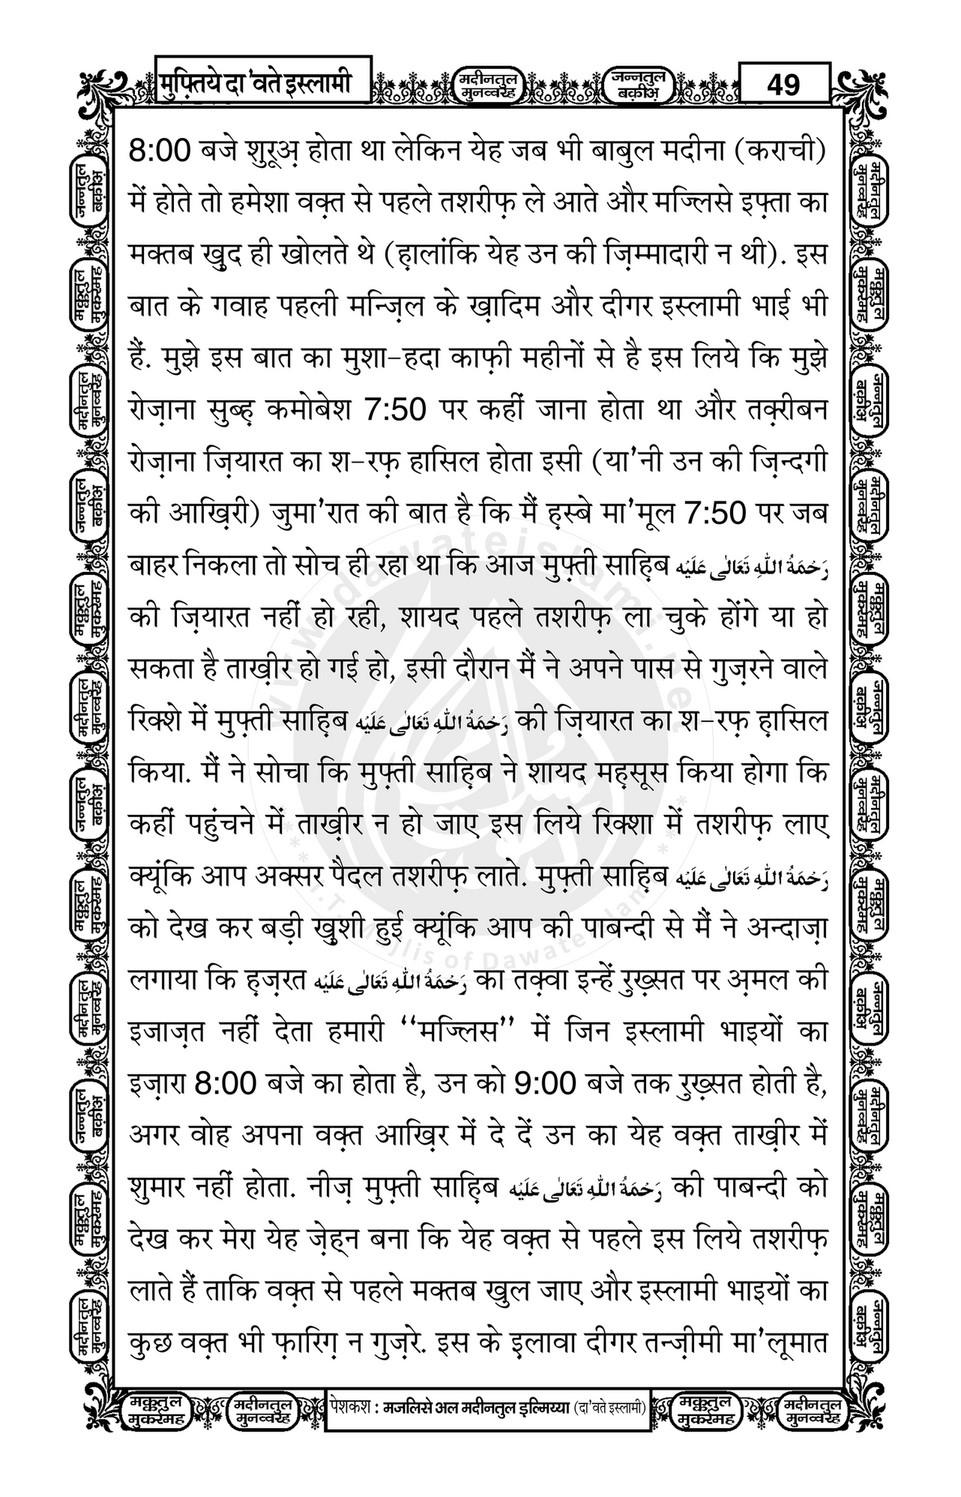 मुफ़्तिये दा'वते इस्लामी
मदीनतुल
मुनव्वरह
जन्नतुल
बक़ीअ़
49
8:00 बजे शुरूअ़ होता था लेकिन येह जब भी बाबुल मदीना (कराची)
में होते तो हमेशा वक़्त से पहले तशरीफ़ ले आते और मज्लिसे इफ़्ता का
मक्तब खुद ही खोलते थे (हा़लांकि येह उन की ज़िम्मादारी न थी). इस
बात के गवाह पहली मन्ज़िल के ख़ादिम और दीगर इस्लामी भाई भी
हैं. मुझे इस बात का मुशा-हदा काफ़ी महीनों से है इस लिये कि मुझे
रोज़ाना सुब्ह़ कमोबेश 7:50 पर कहीं जाना होता था और तक़्रीबन
रोज़ाना ज़ियारत का श-रफ़ हासिल होता इसी (या'नी उन की ज़िन्दगी
की आख़िरी) जुमा'रात की बात है कि मैं ह़स्बे मा'मूल 7:50 पर जब
बाहर निकला तो सोच ही रहा था कि आज मुफ़्ती साहि़ब رَحْمَةُ اللهِ تَعَالٰى عَلَيْه
की ज़ियारत नहीं हो रही, शायद पहले तशरीफ़ ला चुके होंगे या हो
सकता है ताख़ीर हो गई हो, इसी दौरान मैं ने अपने पास से गुज़रने वाले
रिक्शे में मुफ़्ती साहि़ब رَحْمَةُ اللهِ تَعَالٰى عَلَيْه की ज़ियारत का श-रफ़ हा़सिल
किया. मैं ने सोचा कि मुफ़्ती साहि़ब ने शायद मह़सूस किया होगा कि
कहीं पहुंचने में ताख़ीर न हो जाए इस लिये रिक्शा में तशरीफ़ लाए
क्यूंकि आप अक्सर पैदल तशरीफ़ लाते. मुफ़्ती साहि़ब رَحْمَةُ اللهِ تَعَالٰى عَلَيْه
को देख कर बड़ी खुशी हुई क्यूंकि आप की पाबन्दी से मैं ने अन्दाज़ा
लगाया कि ह़ज़रत رَحْمَةُ اللهِ تَعَالٰى عَلَيْه का तक़्वा इन्हें रुख़्सत पर अ़मल की
इजाज़त नहीं देता हमारी ‘‘मज्लिस’’ में जिन इस्लामी भाइयों का
इजा़रा 8:00 बजे का होता है, उन को 9:00 बजे तक रुख़्सत होती है,
अगर वोह अपना वक़्त आख़िर में दे दें उन का येह वक़्त ताख़ीर में
शुमार नहीं होता. नीज़ मुफ़्ती साहि़ब رَحْمَةُ اللهِ تَعَالٰى عَلَيْه की पाबन्दी को
देख कर मेरा येह ज़ेह्न बना कि येह वक़्त से पहले इस लिये तशरीफ़
लाते हैं ताकि वक़्त से पहले मक्तब खुल जाए और इस्लामी भाइयों का
कुछ वक़्त भी फ़ारिग़ न गुज़रे. इस के इ़लावा दीगर तन्ज़ीमी मा'लूमात
मक्कतुल
मुकर्रमह
मदीनतुल
मुनव्वरह
पेशकश : मजलिसे अल मदीनतुल इल्मिय्या (दा'वते इस्लामी)
मक्कतुल
मुकर्रमह
मदीनतुल
मुनव्वरह